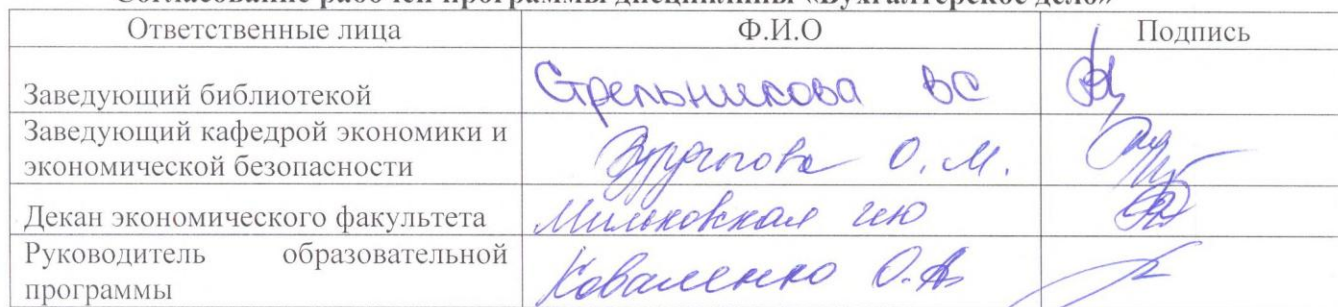 Согласование рабочей программы дисциплины «Бухгалтерское дело»
Ответственные лица Ф.И.О Подпись
Заведующий библиотекой Стрельникова ВС
Заведующий кафедрой экономики и
экономической безопасности О.М.
Декан экономического факультета Мильковская
Руководитель образовательной
программы Коваленко О.А